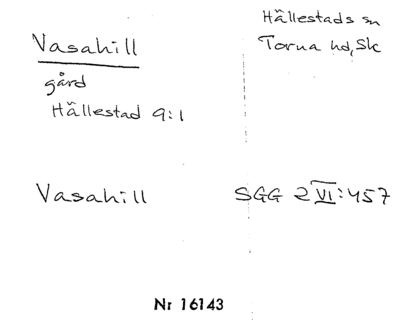 Vasahill
gård
Hällestad 9:1
Hällestads sn
Torna hd, Sk
Vasahill
SGG 2 VI:457
Nr 16143